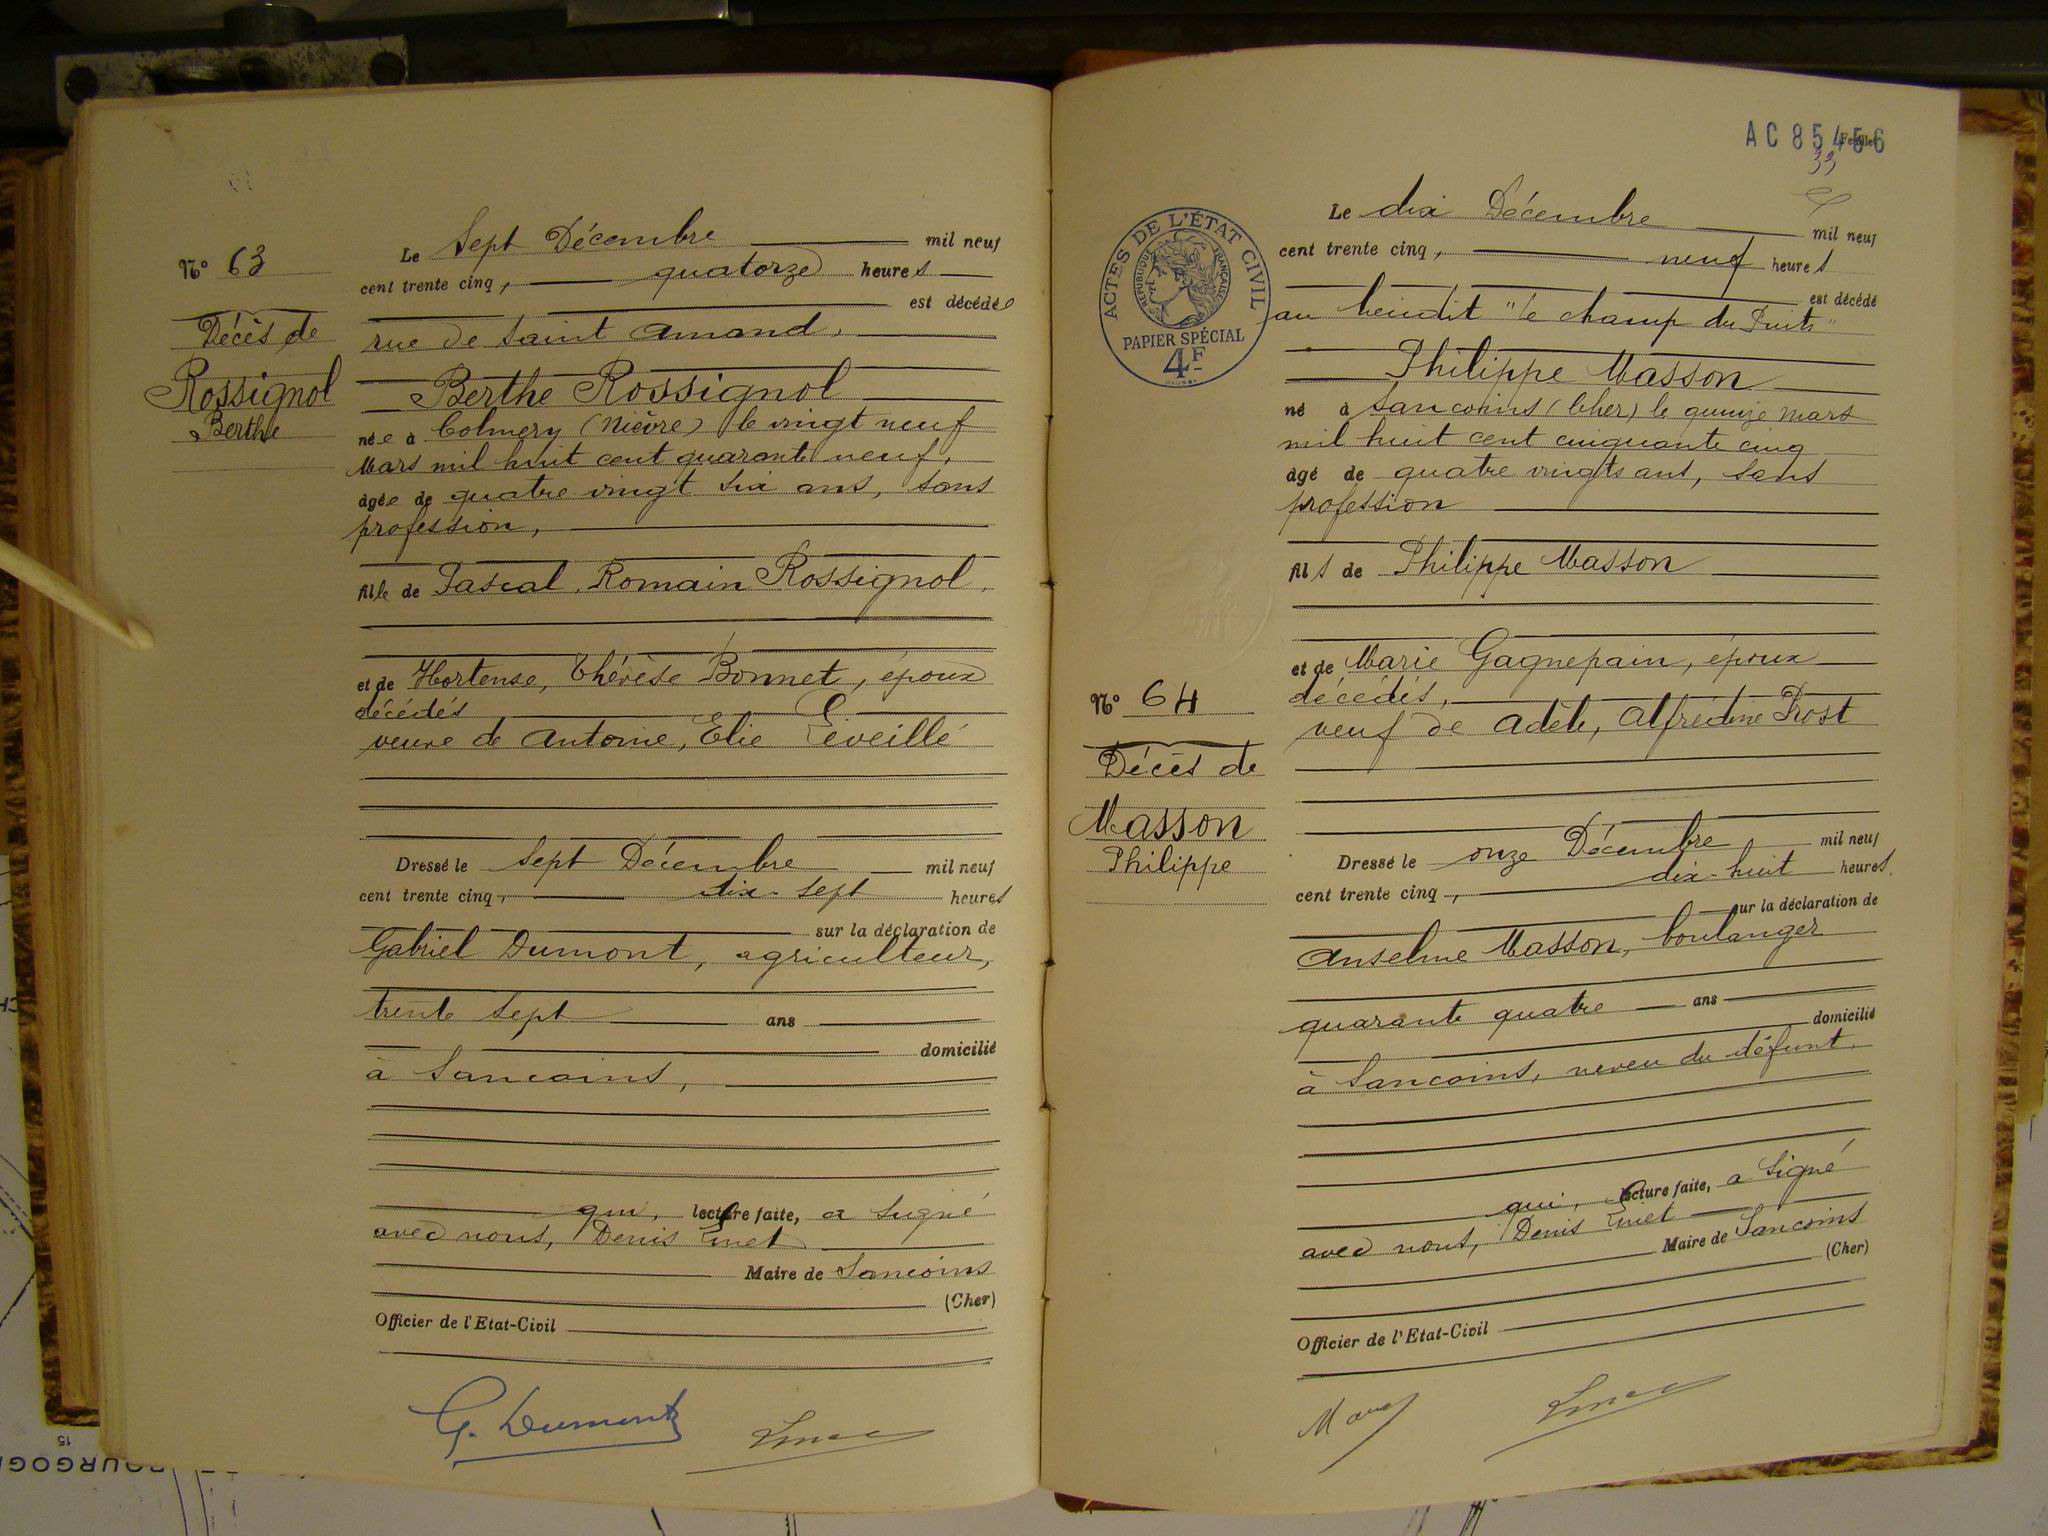 N° 63
Décès de
Rossignol
Berthe
Le Sept Décembre mil neuf
cent trente cinq, quatorze heures
est décédée
rue de Saint Amand,
Berthe Rossignol
née à Colmery (Nièvre) le vingt neuf
Mars mil huit cent quarante neuf,
âgée de quatre vingt six ans, sans
profession,
fille de Pascal, Romain Rossignol,
et de Hortense, Thérèse Bonnet, époux
décédés
veuve de Antoine, Elie Léveillé
Dressé le Sept Décembre mil neuf
cent trente cinq, dix-sept heures
sur la déclaration de
Gabriel Dumont, agriculteur,
trente sept ans
domicilié
à Sancoins,
qui, lecture faite, a signé
avec nous, Denis
Maire de Sancoins
(Cher)
Officier de l'Etat-Civil
G. Dumont
AC 85456
Feuillet
33
ACTES DE L'ÉTAT CIVIL
RÉPUBLIQUE FRANÇAISE
PAPIER SPÉCIAL
4F
N° 64
Décès de
Masson
Philippe
Le dix Décembre mil neuf
cent trente cinq, neuf heures
est décédé
au lieudit "le champ du Puits"
Philippe Masson
né à Sancoins (Cher) le quinze mars
mil huit cent cinquante cinq
âgé de quatre vingts ans, sans
profession
fils de Philippe Masson
et de Marie Gagnepain, époux
décédés,
veuf de Adèle, Alfrédine Prost
Dressé le onze Décembre mil neuf
cent trente cinq, dix-huit heures.
sur la déclaration de
Anselme Masson, boulanger
quarante quatre ans
domicilié
à Sancoins, neveu du défunt,
qui, lecture faite, a signé
avec nous, Denis
Maire de Sancoins
(Cher)
Officier de l'Etat-Civil